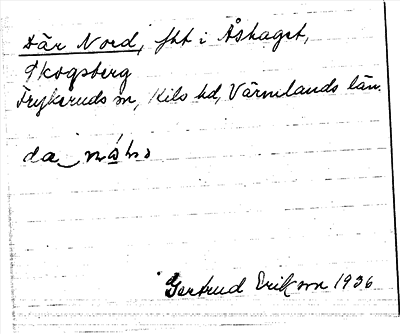 Där Nord, fht i Åshaget,
Skogsberg
Frykeruds sn, Kils hd, Värmlands län.
Gertrud Eriksson 1936